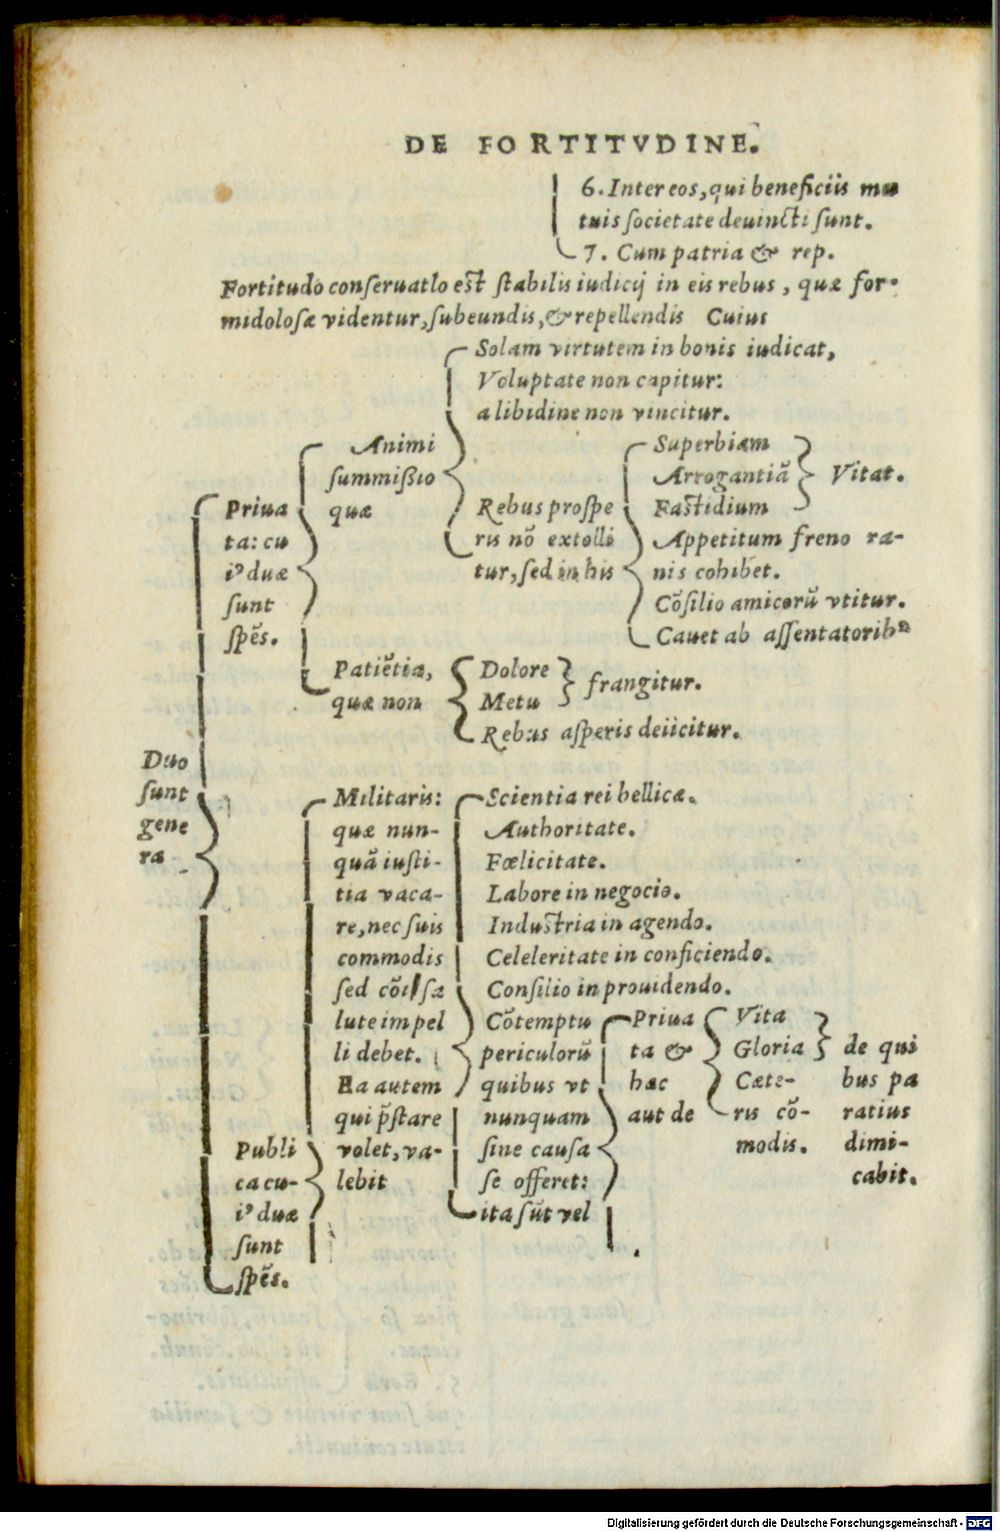 DE FORTITVDINE.
6. Inter eos, qui beneficiis mu
tuis societate deuincti sunt.
7. Cum patria & rep.
Fortitudo conseruatIo est stabilis iudicij in eis rebus, quæ for-
midolosæ videntur, subeundis, & repellendis Cuius
Duo
sunt
gene
ra
Priua
ta: cu
i⁹ duæ
sunt
spēs.
Animi
summißio
quæ
Solam virtutem in bonis iudicat,
Voluptate non capitur:
a libidine non vincitur.
Rebus prospe
ris nō extolli
tur, sed in his
Superbiam
Arrogantiā
Fastidium
Vitat.
Appetitum freno ra-
nis cohibet.
Cōsilio amicorū vtitur.
Cauet ab assentatorib⁹
Patiētia,
quæ non
Dolore
Metu
frangitur.
Rebus asperis deiicitur.
Publi
ca cu-
i⁹ duæ
sunt
spēs.
Militaris:
quæ nun-
quā iusti-
tia vaca-
re, nec suis
commodis
sed cōi sa
lute impel
li debet.
Ea autem
qui p̄stare
volet, va-
lebit
Scientia rei bellicæ.
Authoritate.
Fœlicitate.
Labore in negocio.
Industria in agendo.
Celeleritate in conficiendo.
Consilio in prouidendo.
Cōtemptu
periculorū
quibus vt
nunquam
sine causa
se offeret:
ita sūt vel
Priua
ta &
hæc
aut de
Vita
Gloria
Cæte-
ris cō-
modis.
de qui
bus pa
ratius
dimi-
cabit.
Digitalisierung gefördert durch die Deutsche Forschungsgemeinschaft - DFG